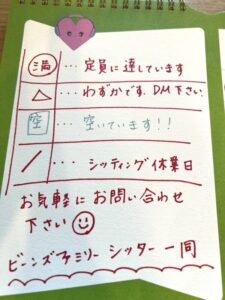 満 … 定員に達しています
△ … わずかです. DM下さい
空 … 空いています!!
／ … シッティング休業日
お気軽にお問い合わせ
下さい☺
ビーンズファミリー シッター 一同